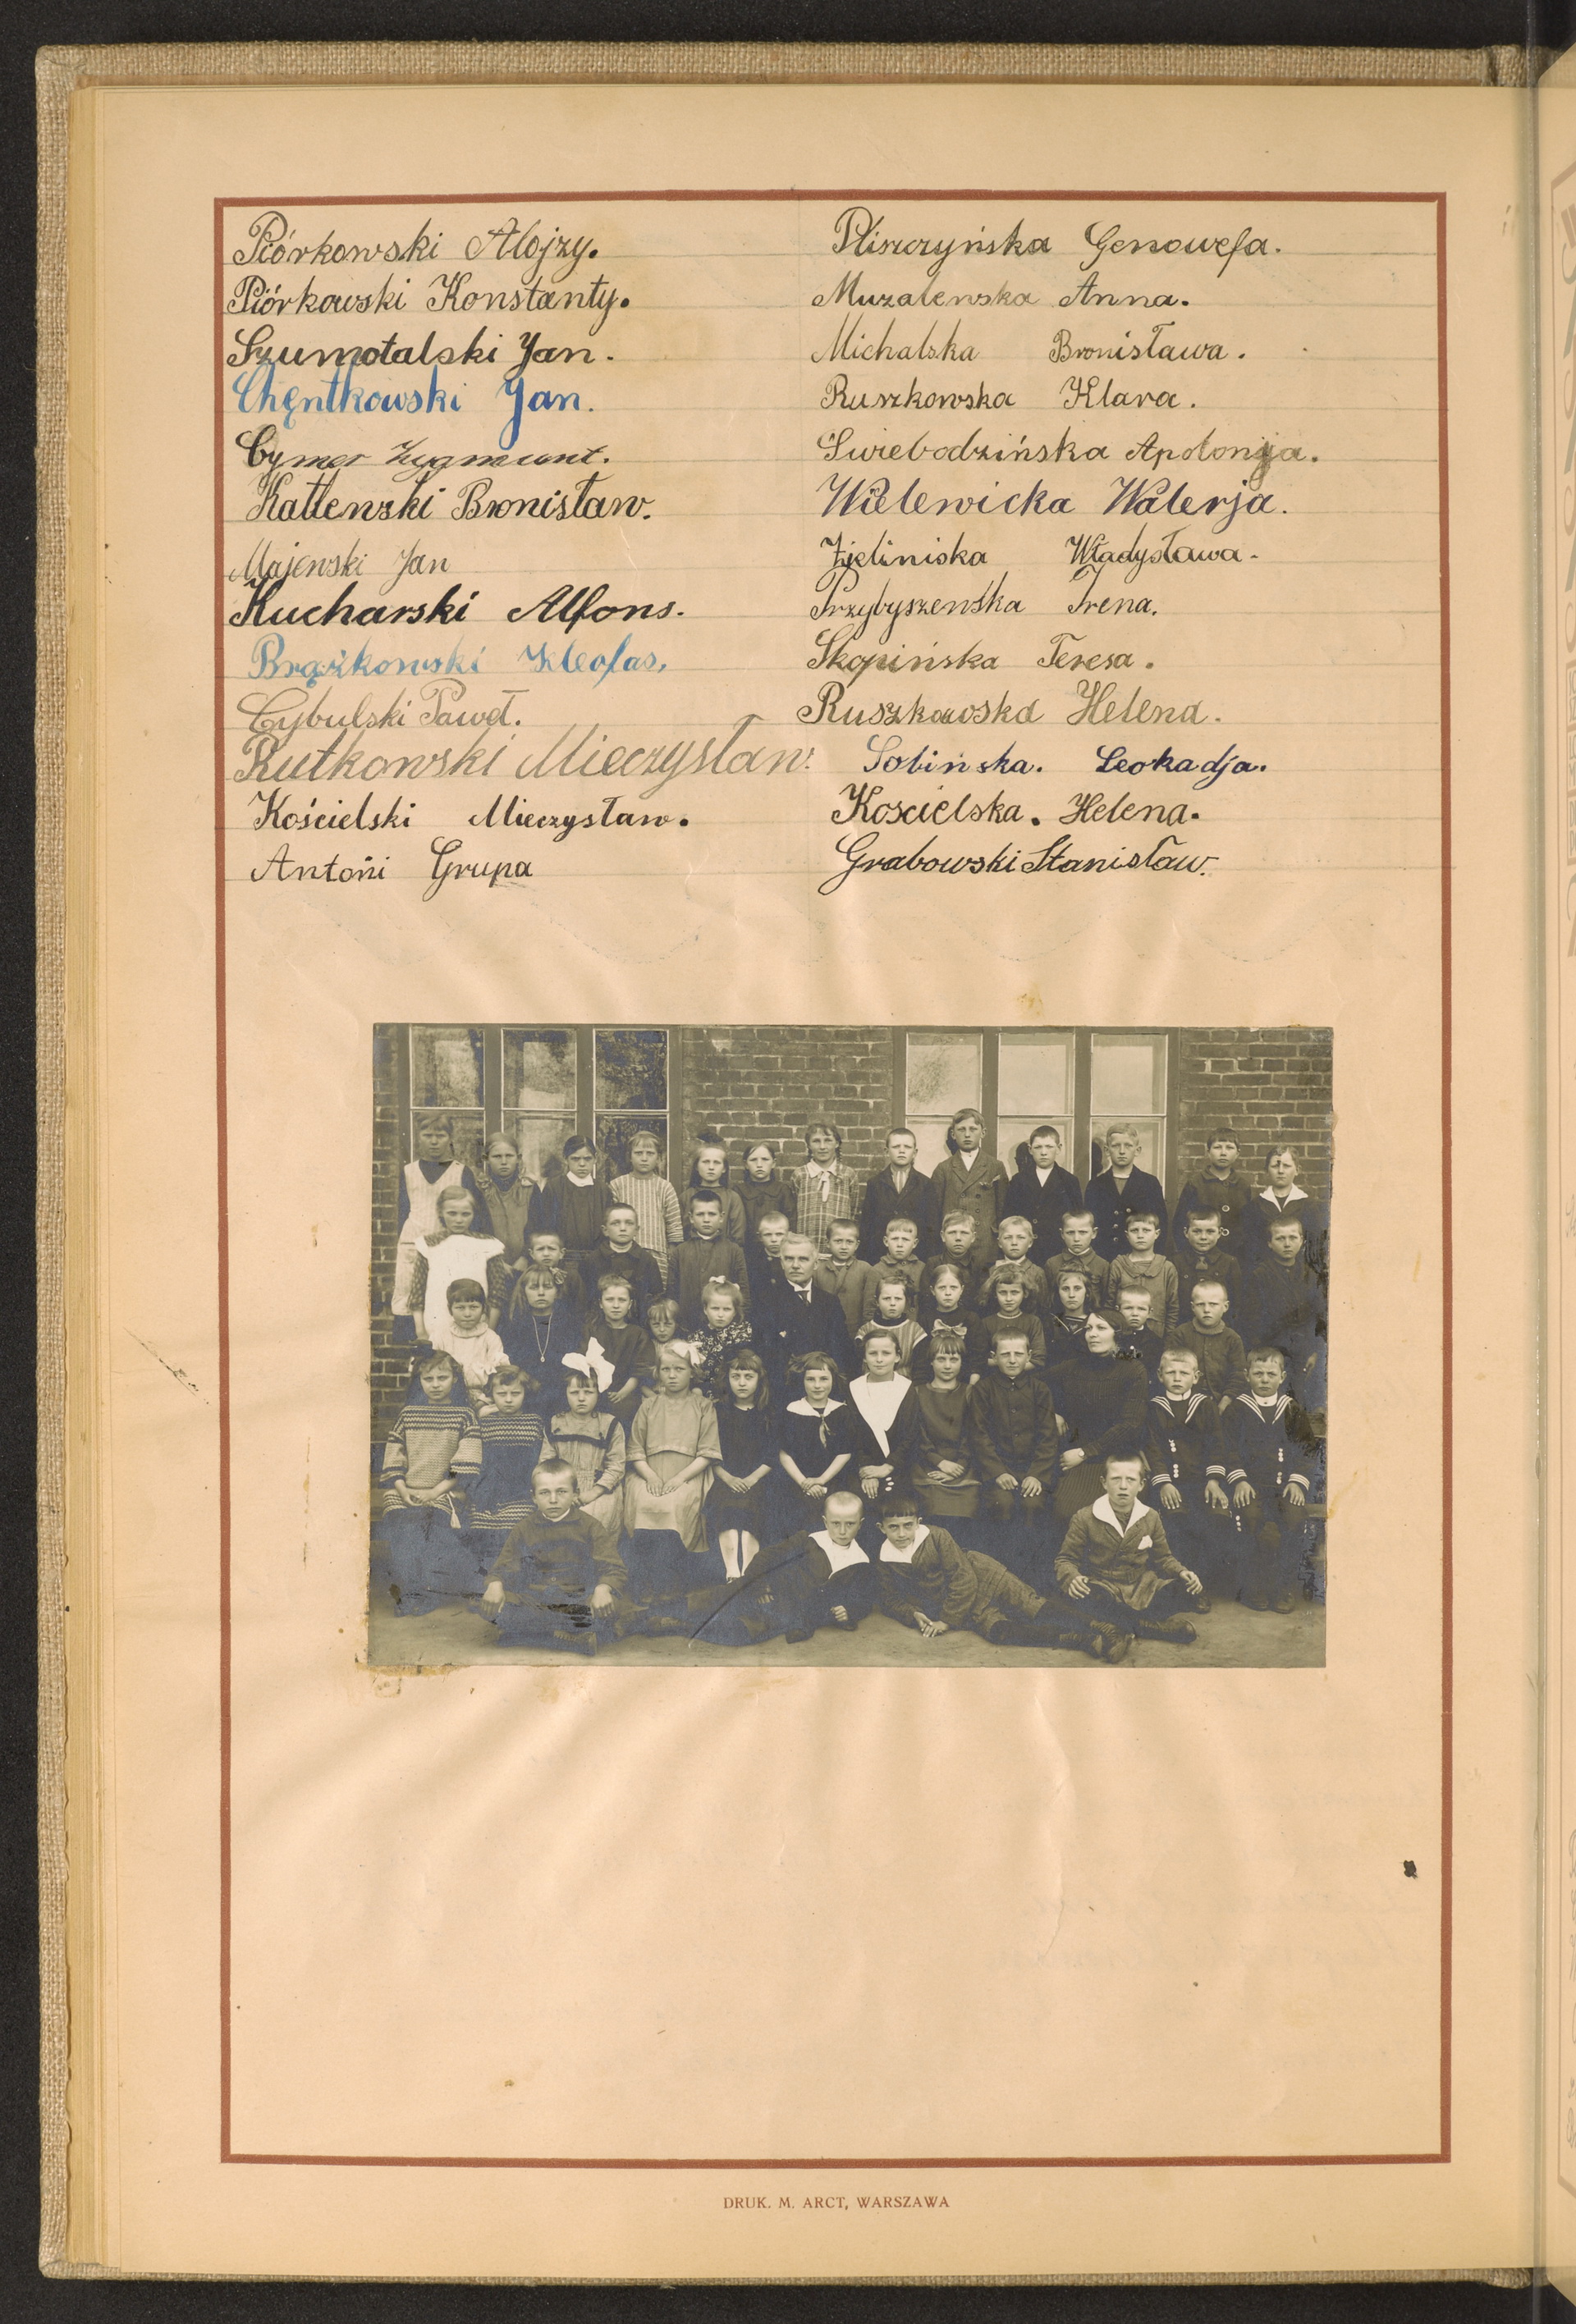 Piórkowski Alojzy.
Piórkowski Konstanty.
Szumotalski Jan.
Chęntkowski Jan.
Cymer Zygmunt.
Katlewski Bronisław.
Majewski Jan
Kucharski Alfons.
Brązkowski Kleofas.
Cybulski Paweł.
Rutkowski Mieczysław.
Kościelski Mieczysław.
Antoni Grupa
Pliszczyńska Genowefa.
Muzalewska Anna.
Michalska Bronisława.
Ruszkowska Klara.
Świebodzińska Apolonja.
Wielewicka Walerja.
Zieliniska Władysława.
Przybyszewska Irena.
Skopińska Teresa.
Ruszkowska Helena.
Sobińska. Leokadja.
Koscielska. Helena.
Grabowski Stanisław.
DRUK. M. ARCT, WARSZAWA